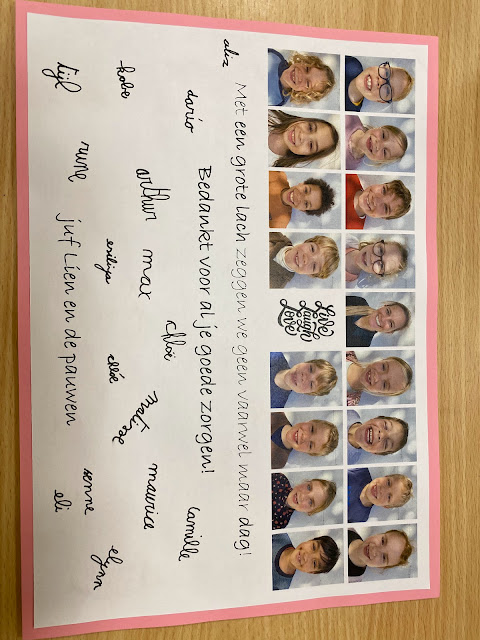 Live
Laugh
Love
Met een grote lach zeggen we geen vaarwel maar dag!
aliz
Bedankt voor al je goede zorgen!
dario
camille
chloë
arthur
max
maurice
kobe
elynn
rune
senne
juf Lien en de pauwen
tijl
eli